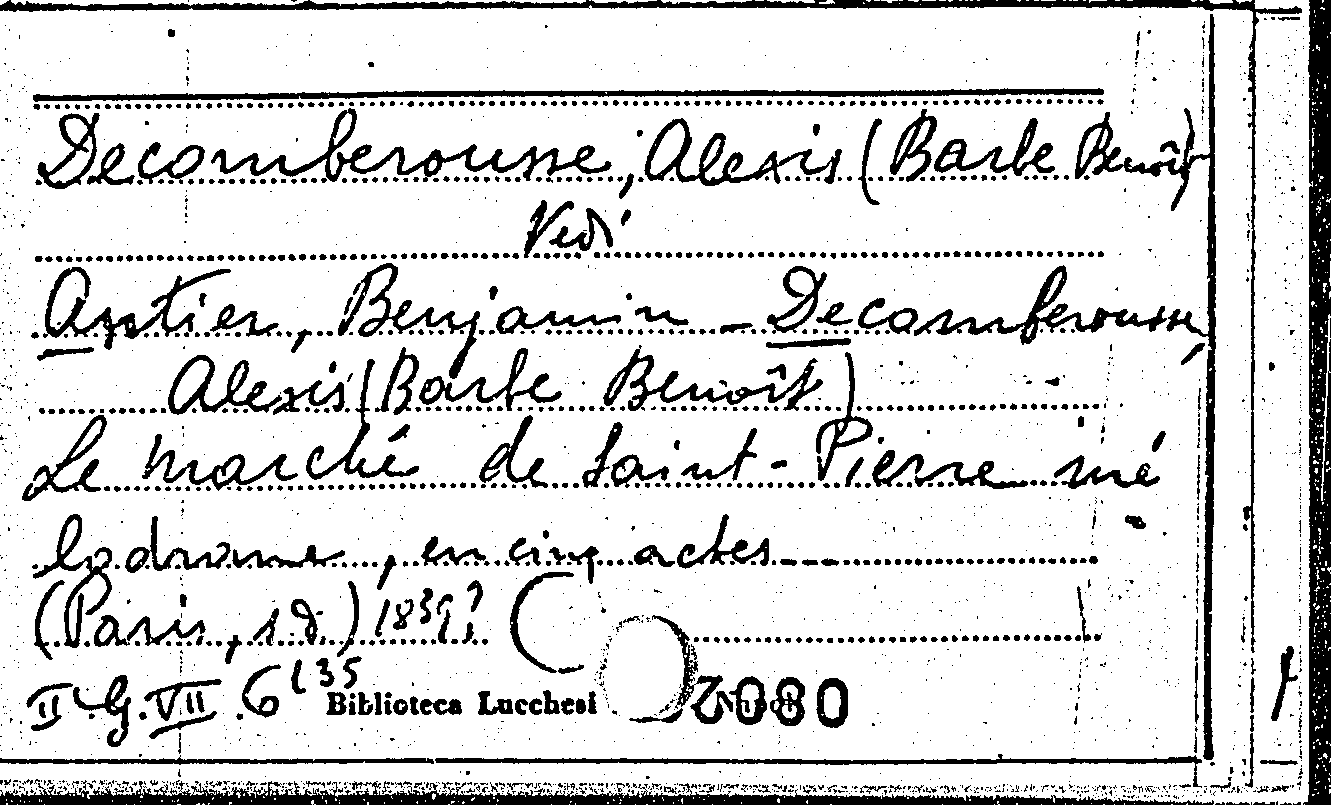 Decomberousse, Alexis (Barbe Benoît)
Vedi
Antier, Benjamin - Decomberousse,
Alexis (Barbe Benoît)
Le marché de Saint-Pierre mé
lodrame, en cinq actes---
(Paris, s.d.) 1839?
II.G.VII.6(35
Biblioteca Lucchesi